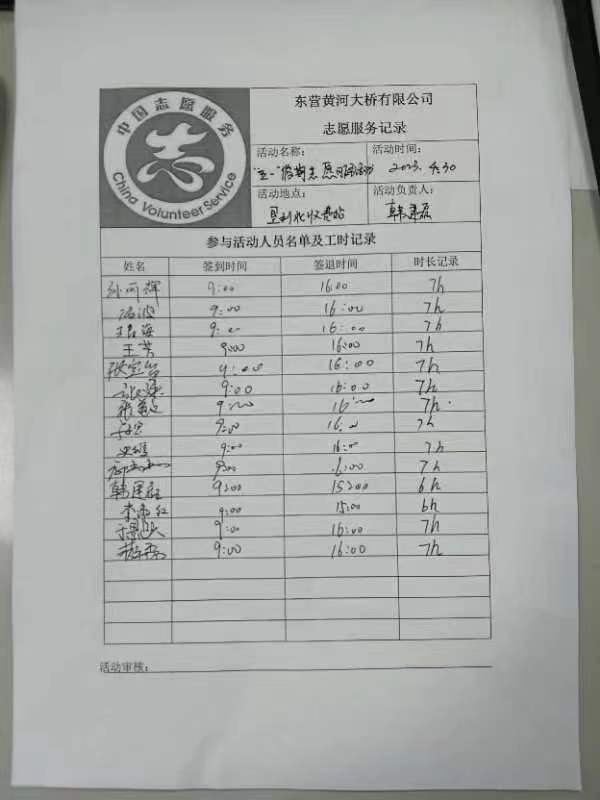 中国志愿服务
志
China Volunteer Service
东营黄河大桥有限公司
志愿服务记录
活动名称:
"五一"假期志愿服务活动
活动时间:
2023. 4.30
活动地点:
垦利北收费站
活动负责人:
参与活动人员名单及工时记录
姓名 签到时间 签退时间 时长记录
9:00 16:00 7h
9:00 16:00 7h
9:00 16:00 7h
王芳 9:00 16:00 7h
9:00 16:00 7h
9:00 16:00 7h
9:00 16:00 7h.
9:00 16:00 7h
9:00 16:00 7h
9:00 16:00 7h
9:00 15:00 6h
9:00 15:00 6h
9:00 16:00 7h
9:00 16:00 7h
活动审核: